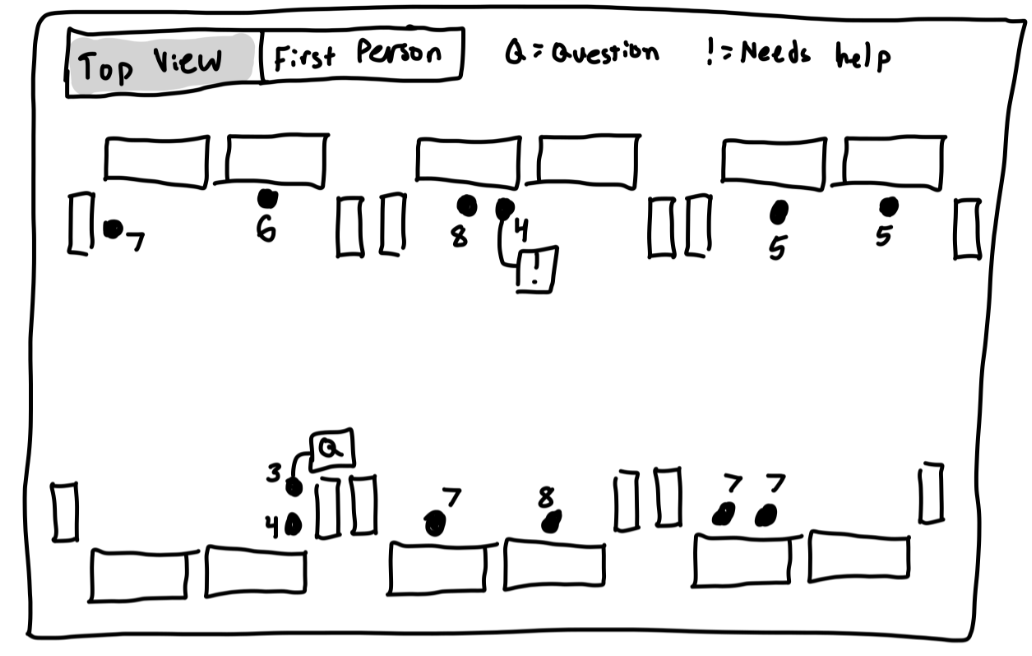 Top View
First Person
Q = Question
! = Needs help
7
6
8
4
!
5
5
Q
3
4
7
8
7
7